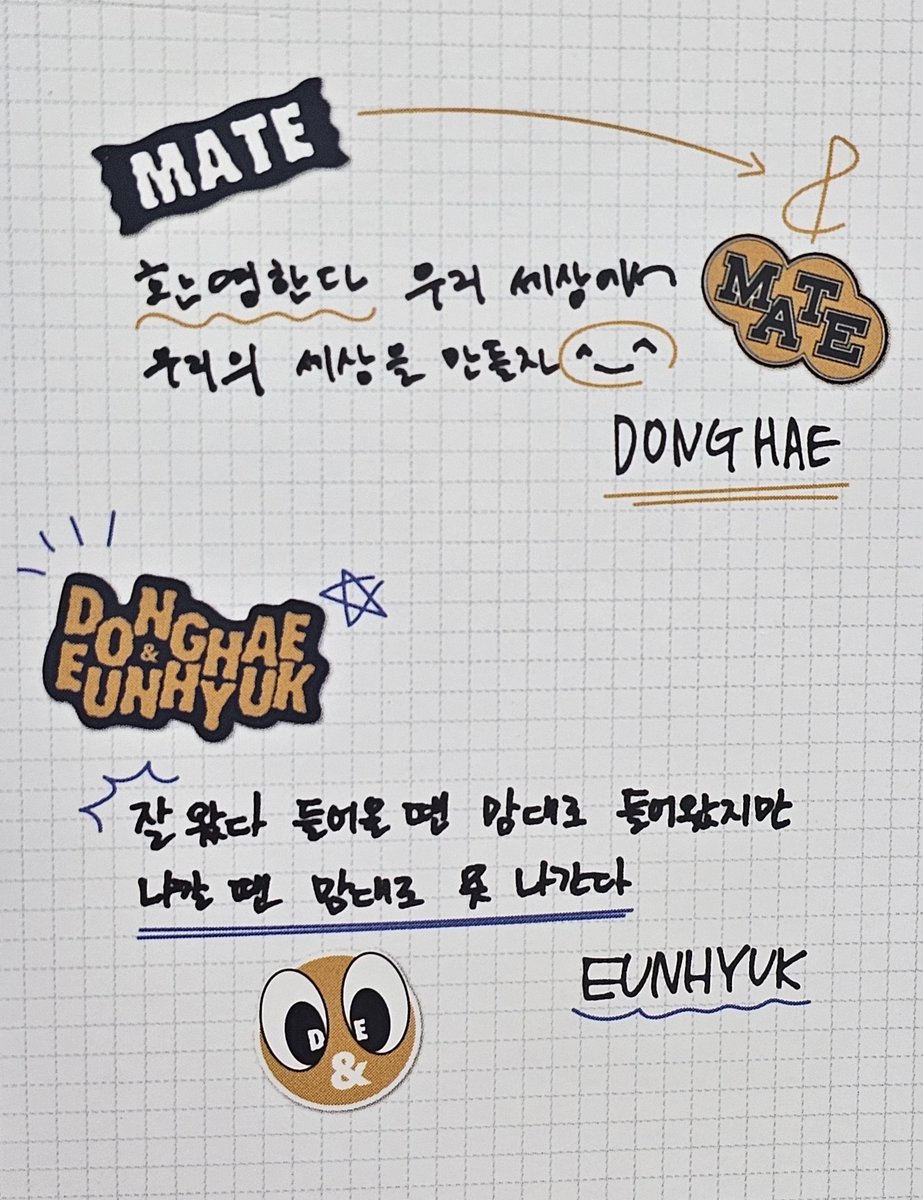 MATE
&
환영한다 우리 세상에서
MATE
우리의 세상을 만들자 ^_^
DONGHAE
DONGHAE
&
EUNHYUK
잘 왔다 들어올 땐 맘대로 들어왔지만
나갈 땐 맘대로 못 나간다
EUNHYUK
D E
&